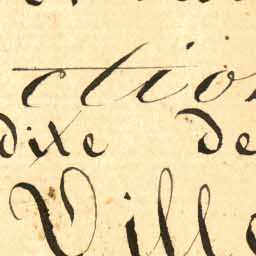 ction
dixe de
Ville